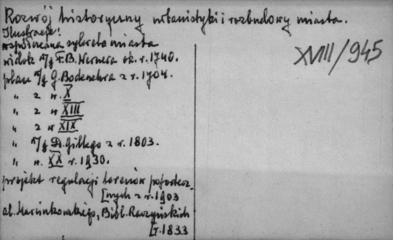 Rozwój historyczny urbanistyki i rozbudowy miasta.
Ilustracje:
współczesna sylweta miasta
XVIII/945
widok w/g F.B. Wernera ok. r. 1740.
plan w/g G. Bodenehra z r. 1704.
" z w. X
" z w. XIII
" z w. XIX
" w/g D. Gillego z r. 1803.
" w. XX r. 1930.
projekt regulacji terenów pofortecz
[nych z r. 1903
al. Marcinkowskiego, Bibl. Raczyńskich
[r. 1833